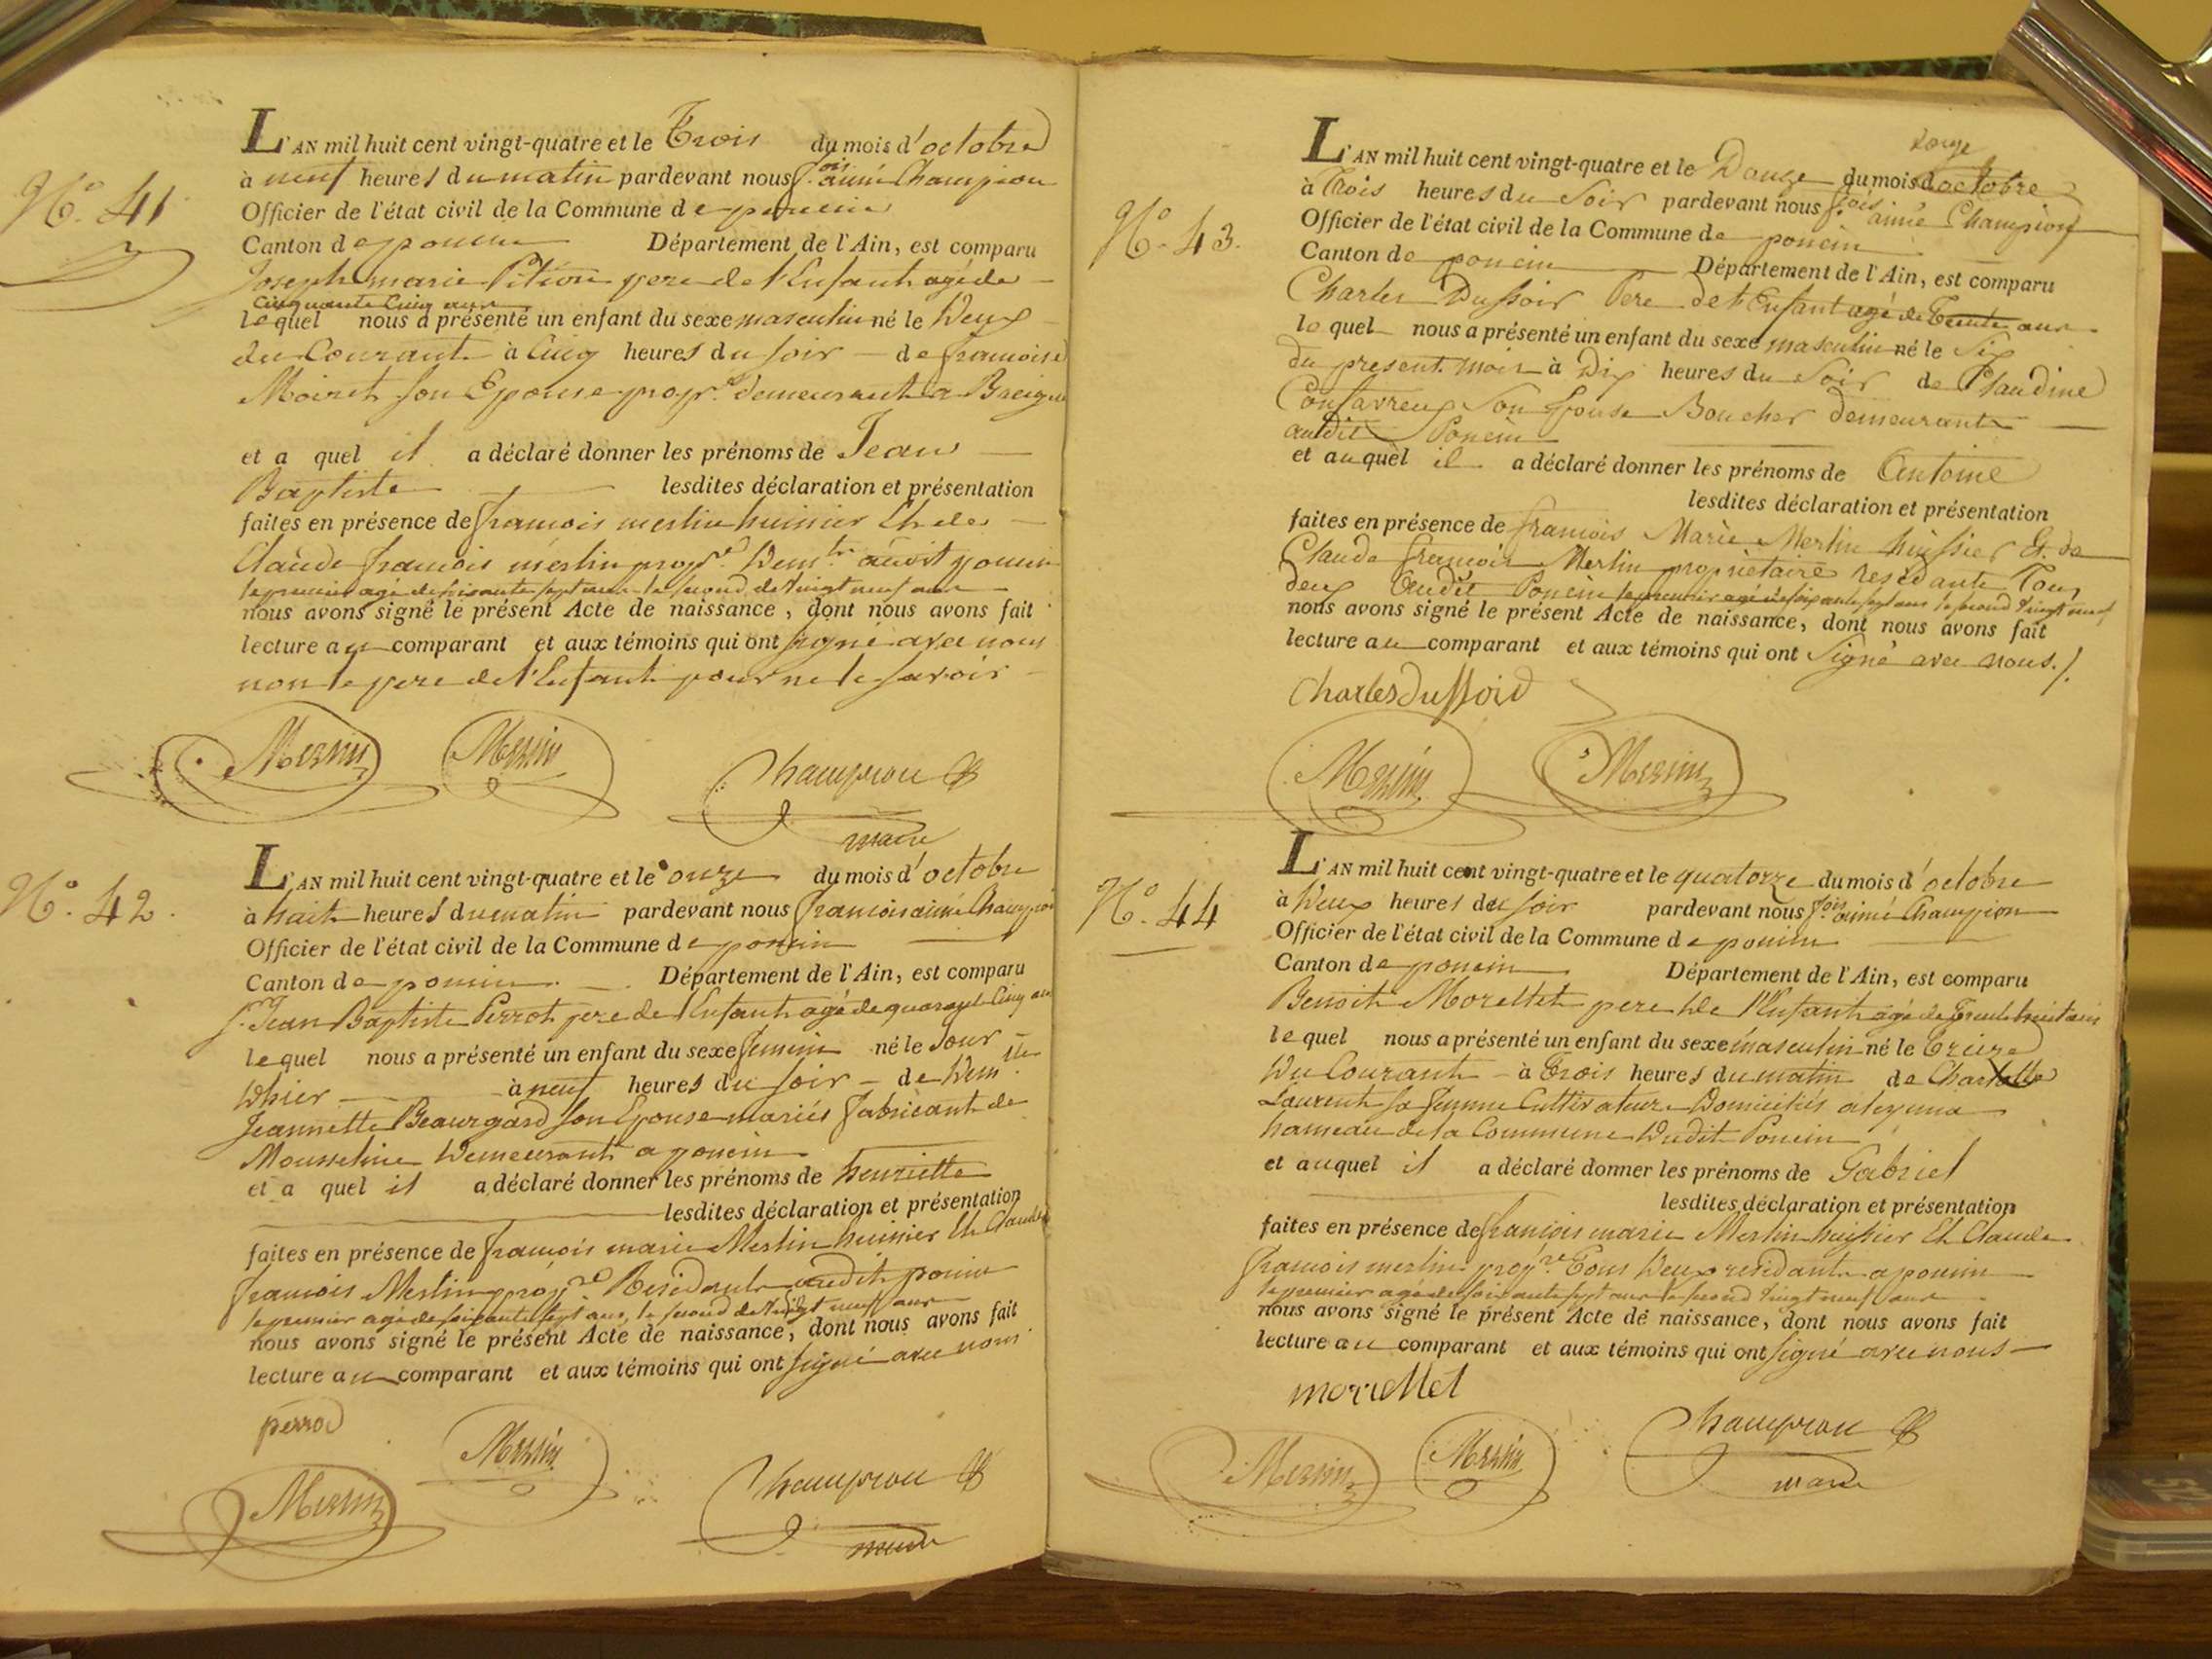 N.° 41
L'AN mil huit cent vingt-quatre et le Trois du mois d'octobre
à neuf heures du matin pardevant nous f.ois aimé Champion
Officier de l'état civil de la Commune de poncin
Canton de poncin Département de l'Ain, est comparu
Joseph marie Pition pere de l'Enfant agé de
Cinquante Cinq ans
lequel nous a présenté un enfant du sexe masculin né le Deux
du Courant à Cinq heures du soir de francoise
Moiret son Epouse prop.re demeurant a
et a quel il a déclaré donner les prénoms de Jean
Baptiste lesdites déclaration et présentation
faites en présence de francois merlin huissier Et de
Claude francois merlin prop.re Dem.t poncin
le premier agé de soixante sept ans le second de vingt neuf ans
nous avons signé le présent Acte de naissance, dont nous avons fait
lecture au comparant et aux témoins qui ont signé avec nous
non le pere de l'Enfant pour ne le savoir
Merlin Merlin Champion
maire
N.° 42.
L'AN mil huit cent vingt-quatre et le onze du mois d'octobre
à huit heures du matin pardevant nous francois aimé Champion
Officier de l'état civil de la Commune de poncin
Canton de poncin Département de l'Ain, est comparu
s.r Jean Baptiste Perrot pere de l'Enfant agé de quarante Cinq ans
lequel nous a présenté un enfant du sexe feminin né le Jour
Dhier à neuf heures du soir de Dem.lle
Jeannette Beauregard son Epouse mariés fabricant de
Mousseline Demeurant a poncin
et a quel il a déclaré donner les prénoms de henriette
lesdites déclaration et présentation
faites en présence de francois marie Merlin huissier Et Claude
francois Merlin prop.re Residant audit poncin
le premier agé de soixante sept ans, le second de vingt neuf ans
nous avons signé le présent Acte de naissance, dont nous avons fait
lecture au comparant et aux témoins qui ont signé avec nous
perrod Merlin
Merlin Champion
maire
N.° 43.
L'AN mil huit cent vingt-quatre et le Douze du mois d'octobre
à Trois heures du Soir pardevant nous f.ois aimé Champion
Officier de l'état civil de la Commune de poncin
Canton de poncin Département de l'Ain, est comparu
Charles Dussoir Pere de l'Enfant agé de Trente ans
le quel nous a présenté un enfant du sexe masculin né le Six
du present mois à Dix heures du Soir de Claudine
Convavreux Son Epouse Boucher demeurant
audit Poncin
et auquel il a déclaré donner les prénoms de Antoine
lesdites déclaration et présentation
faites en présence de francois Marie Merlin huissier Et de
Claude francois Merlin propriétaire residants Tous
deux Audit Poncin le premier agé de soixante sept ans le second vingt neuf
nous avons signé le présent Acte de naissance, dont nous avons fait
lecture au comparant et aux témoins qui ont Signé avec nous./.
Charles Dussoid
Merlin Merlin
N.° 44
L'AN mil huit cent vingt-quatre et le quatorze du mois d'octobre
à Deux heures du soir pardevant nous f.ois aimé Champion
Officier de l'état civil de la Commune de poncin
Canton de poncin Département de l'Ain, est comparu
Benoit Morellet pere de l'Enfant agé de Trente huit ans
lequel nous a présenté un enfant du sexe masculin né le Treize
Du Courant à Trois heures du matin de Charlotte
Laurent sa femme Cultivateurs Domiciliés
hameau de la Commune Dudit Poncin
et auquel il a déclaré donner les prénoms de Gabriel
lesdites déclaration et présentation
faites en présence de francois marie Merlin huissier Et Claude
francois merlin prop.re Tous Deux residants a poncin
le premier agé de soixante sept ans le second vingt neuf ans
nous avons signé le présent Acte de naissance, dont nous avons fait
lecture au comparant et aux témoins qui ont signé avec nous
morellet
Merlin Merlin Champion
maire